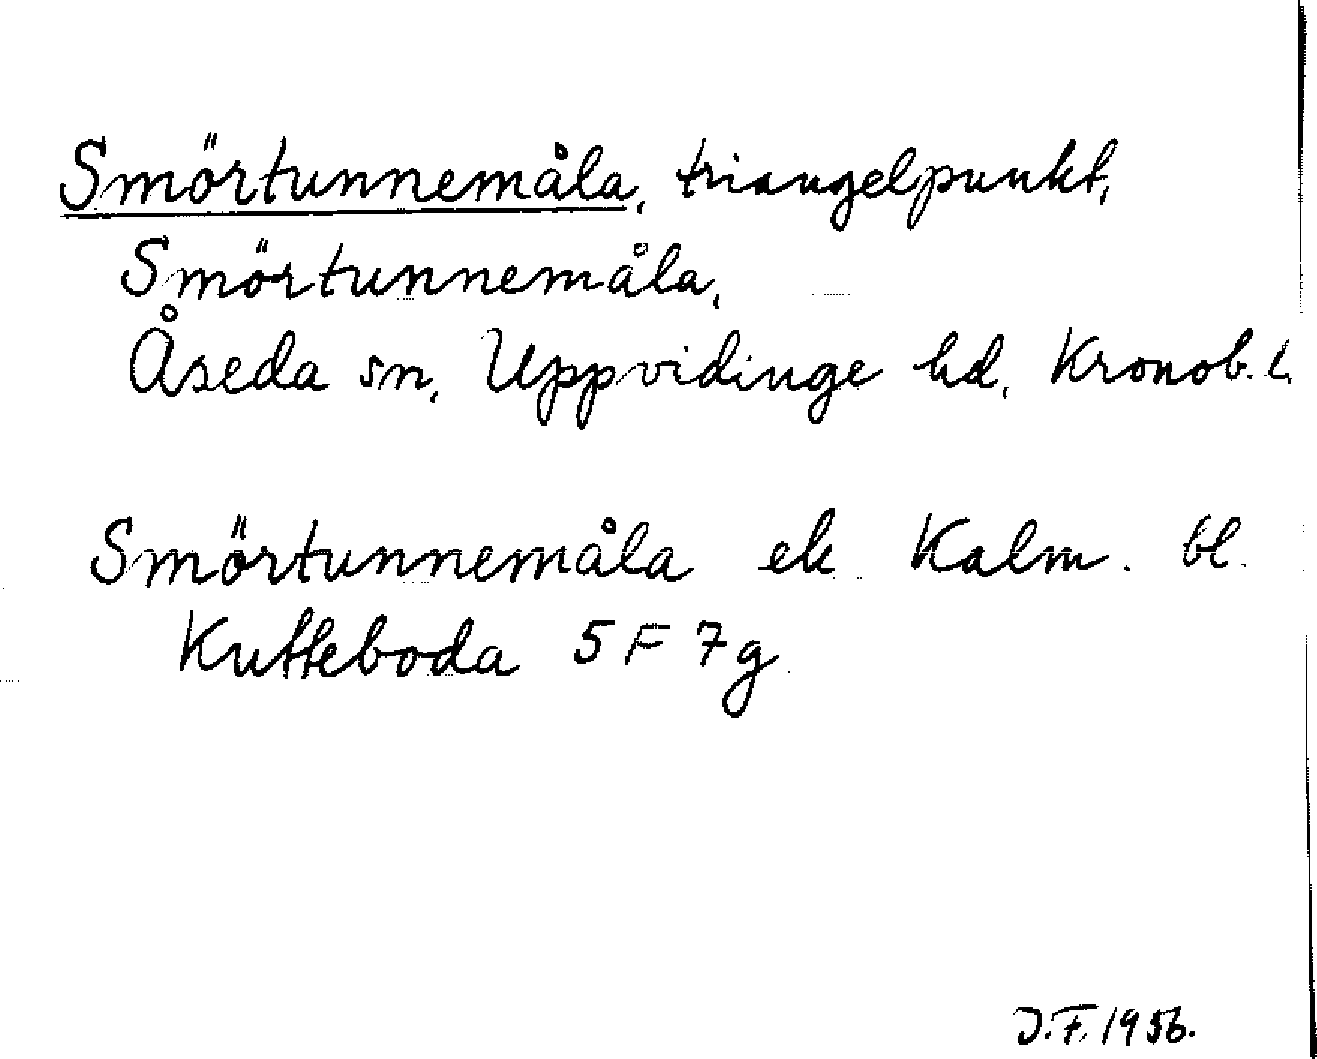 Smörtunnemåla, triangelpunkt,
Smörtunnemåla,
Åseda sn, Uppvidinge hd, Kronob. l.
Smörtunnemåla ek Kalm. bl.
Kutteboda 5 F 7 g
J.F. 1956.